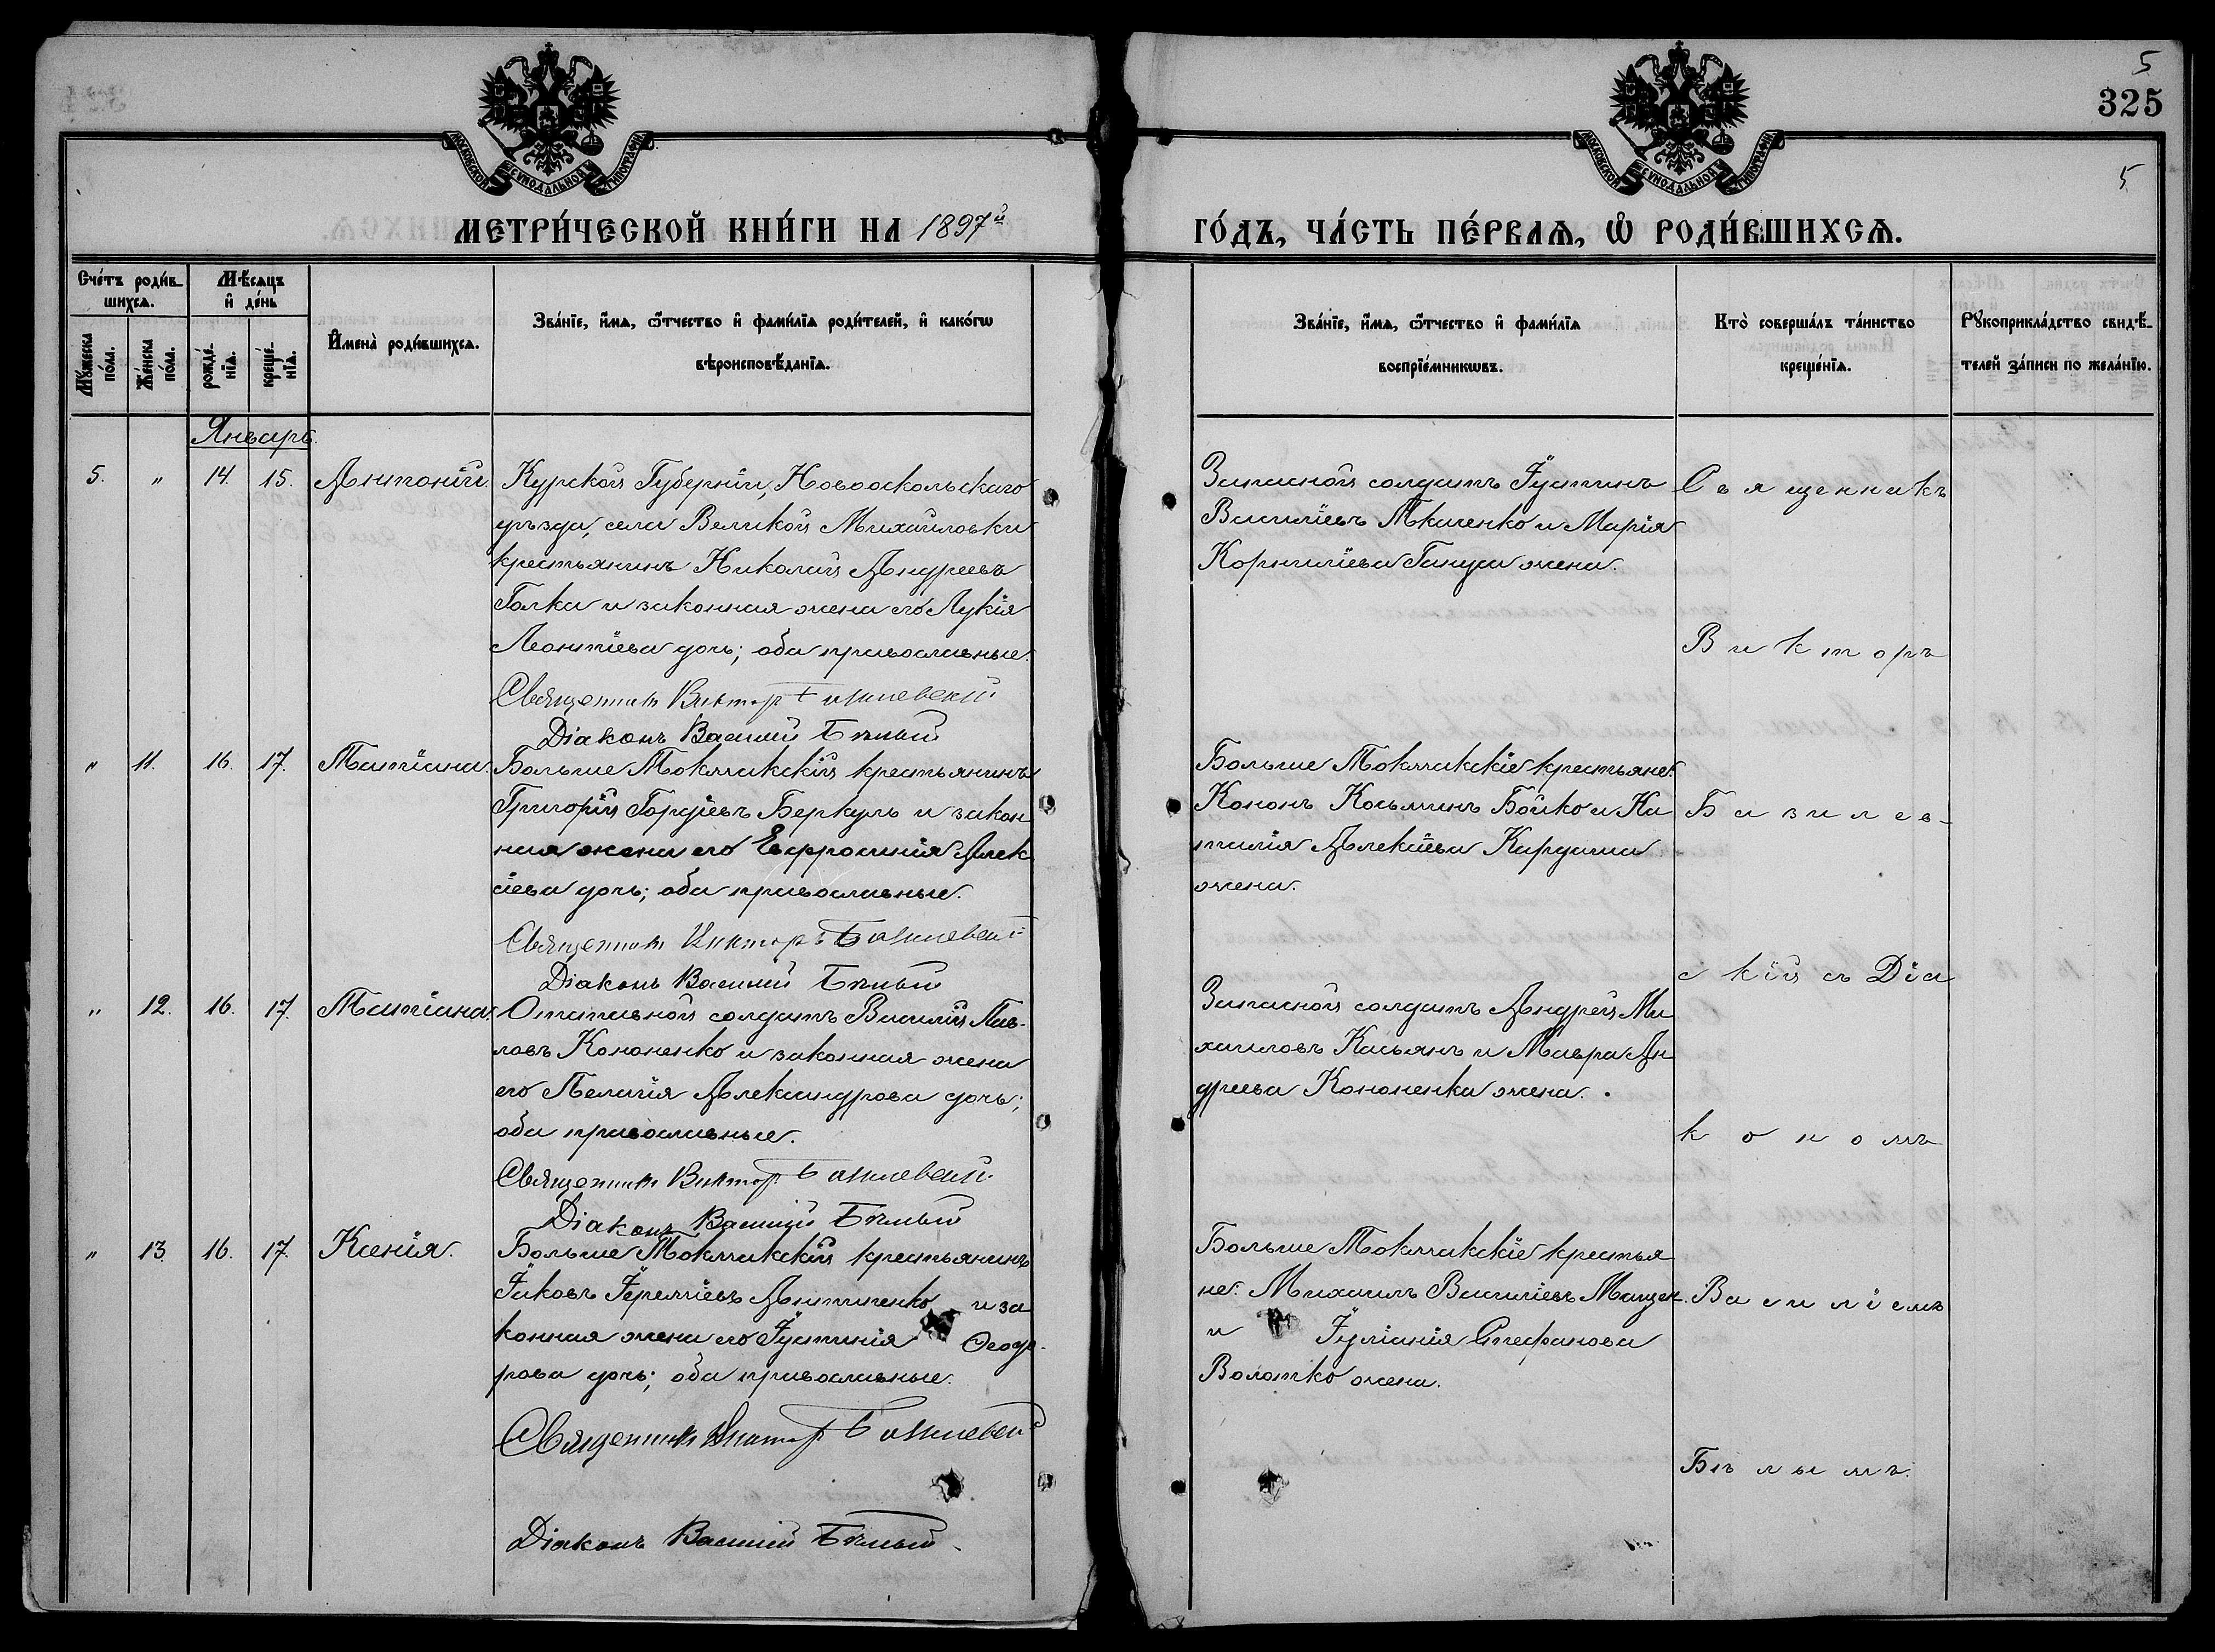 5
325
5
МОСКОВСКОЙ СѴНОДАЛЬНОЙ ТИПОГРАФІИ
МОСКОВСКОЙ СѴНОДАЛЬНОЙ ТИПОГРАФІИ
МЕТРИ́ЧЕСКОЙ КНИ́ГИ НА 1897й
ГО́ДЪ, ЧА́СТЬ ПЕ́РВАѦ, Ѡ҆ РОДИ́ВШИХСѦ.
Сче́тъ роди́в-
шихсѧ.
Мѣ́сѧцъ
и҆ де́нь
Мꙋ́жеска
по́ла.
Же́нска
по́ла.
рожде́-
нїѧ.
креще́-
нїѧ.
И҆мена̀ роди́вшихсѧ.
Зва́нїе, и҆́мѧ, ѻ҆́тчество и҆ фами́лїѧ роди́телей, и҆ како́гѡ
вѣроисповѣ́данїѧ.
Зва́нїе, и҆́мѧ, ѻ҆́тчество и҆ фами́лїѧ
воспрїе́мникѡвъ.
Кто̀ соверша́лъ та́инство
креще́нїѧ.
Рꙋкоприкла́дство свидѣ́-
телей за́писи по жела́нїю.
Январь.
5. " 14. 15. Антоній. Курской Губерніи, Новооскольскаго
уѣзда, села Великой Михайловки
крестьянинъ Николай Андреевъ
Галка и законная жена его Лукія
Леонтіева дочь; оба православные.
Священникъ Викторъ Базилевскій
Діаконъ Василій Бѣлый
Запасной солдатъ Іустинъ
Василіевъ Ткаченко и Марія
Корниліева Гануса жена.
" 11. 16. 17. Татіана. Больше Токмакскій крестьянинъ
Григорій Гордіевъ Беркуль и закон
ная жена его Евфросинія Алек
сіева дочь; оба православные.
Священникъ Викторъ Базилевскій
Діаконъ Василій Бѣлый
Больше Токмакскіе крестьяне:
Кононъ Косьминъ Бойко и На
талія Алексіева Кардаша
жена.
" 12. 16. 17. Татіана. Отставной солдатъ Василій Пав-
ловъ Кононенко и законная жена
его Пелагія Александрова дочь;
оба православные.
Священникъ Викторъ Базилевскій
Діаконъ Василій Бѣлый
Запасной солдатъ Андрей Ми
хаиловъ Касьянъ и Мавра Ан
дреева Кононенка жена.
" 13. 16. 17. Ксенія. Больше Токмакскій крестьянинъ
Іаковъ Іереміевъ Антипенко и за
конная жена его Іустинія Ѳеодо-
рова дочь; оба православные.
Священникъ Викторъ Базилевскій
Діаконъ Василій Бѣлый.
Больше Токмакскіе крестья
не: Михаилъ Василіевъ
и Іуліанія Стефанова
Волотко жена.
Священникъ
Викторъ
Базилев-
скій съ Діа
кономъ
Василіемъ
Бѣлымъ.